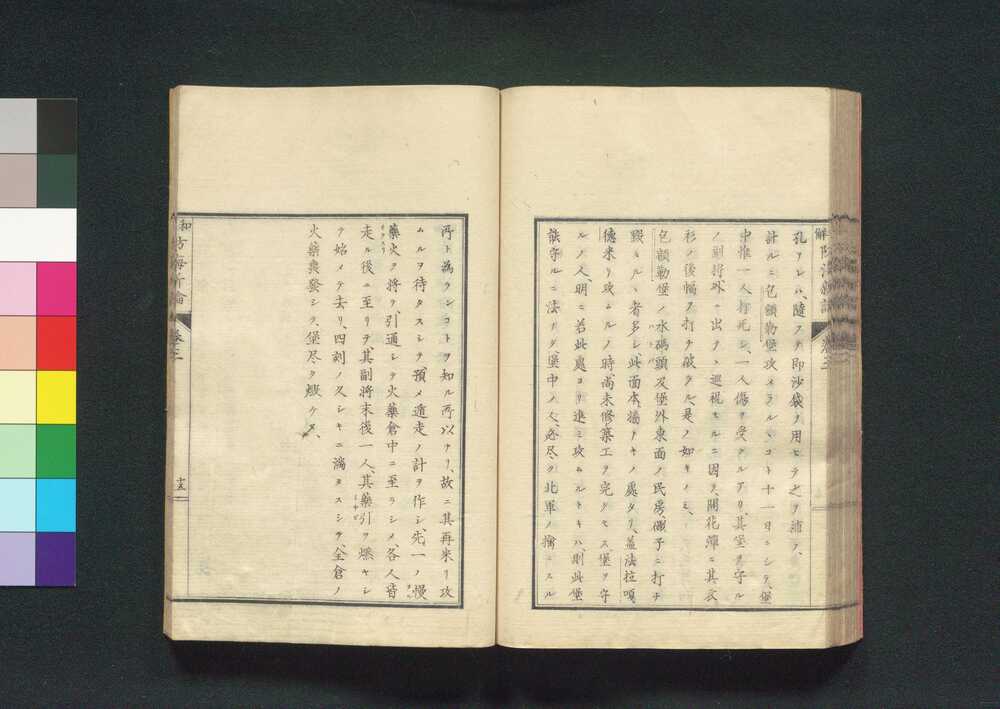 孔アレバ、隨テ即沙袋ヲ用ヒテ之ヲ浦フ、
計ルニ包額勒堡攻メラルヽコト十一日ニシテ、堡
中惟一人打死シ、一人傷ヲ受クルアリ、其堡ヲ守ル
ノ副将外ニ出テヽ巡視セルニ因テ、開花彈ニ其衣
衫ノ後幅ヲ打チ破ラル、是ノ如キノミ、
包額勒堡ノ水碼頭及堡外東面ノ民房、礮子ニ打チ
毀タルヽ者多シ、此面本揚ナキノ處タリ、蓋法拉嘎、
德来リ攻ムルノ時、尚未修築工ヲ完クセス、堡ヲ守
ルノ人、明ニ若此處ヨリ進ミ攻ムルトキハ、則此堡
能守ルニ法ナク、堡中ノ人、必尽ク北軍ノ擒ニスル
所ト為ランコトヲ知ル所以ナリ、故ニ其再来リ攻
ムルヲ待タスシテ、預メ遁走ノ計ヲ作シ、先一ノ慢
藥火ヲ将テ、引通シテ火藥倉中ニ至ラシメ、各人皆
走ル後ニ至リテ、其副将末後一人、其藥引ヲ燃ヤシ
テ始メテ去リ、四刻ノ久シキニ満タスシテ、全倉ノ
火藥轟發シテ、堡尽ク燬ケタ、
卷之三
十五